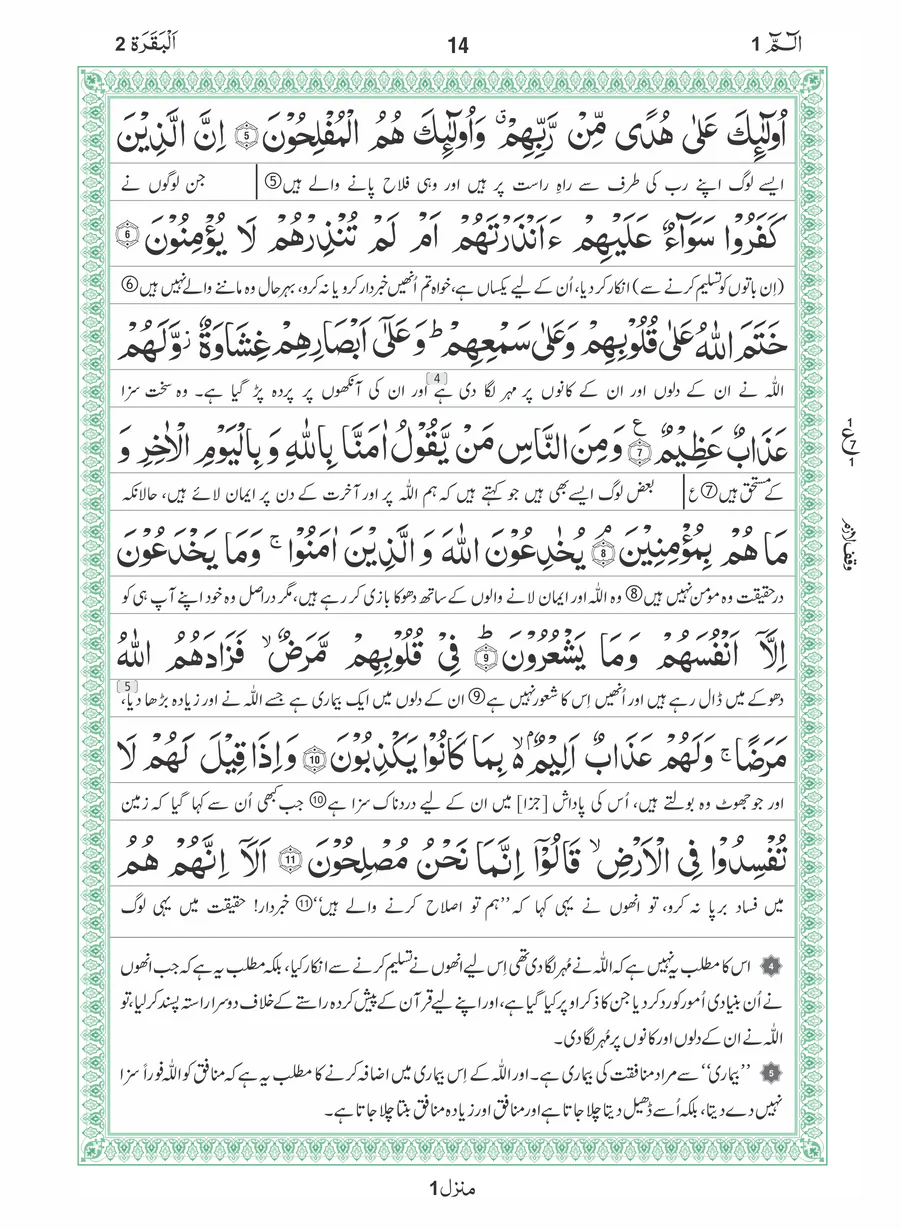 الٓمّٓ 1
14
اَلْبَقَرَة 2
اُولٰٓئِكَ عَلٰى هُدًى مِّنْ رَّبِّهِمْ ۙ وَاُولٰٓئِكَ هُمُ الْمُفْلِحُوْنَ 5 اِنَّ الَّذِيْنَ
ایسے لوگ اپنے رب کی طرف سے راہِ راست پر ہیں اور وہی فلاح پانے والے ہیں⑤ جن لوگوں نے
كَفَرُوْا سَوَآءٌ عَلَيْهِمْ ءَاَنْذَرْتَهُمْ اَمْ لَمْ تُنْذِرْهُمْ لَا يُؤْمِنُوْنَ 6
(اِن باتوں کو تسلیم کرنے سے) انکار کر دیا، اُن کے لیے یکساں ہے، خواہ تم انھیں خبردار کرو یا نہ کرو، بہرحال وہ ماننے والے نہیں ہیں⑥
خَتَمَ اللّٰهُ عَلٰى قُلُوْبِهِمْ وَعَلٰى سَمْعِهِمْ ؕ وَعَلٰٓى اَبْصَارِهِمْ غِشَاوَةٌ ؗ وَّلَهُمْ
اللہ نے ان کے دلوں اور ان کے کانوں پر مہر لگا دی ہے 4 اور ان کی آنکھوں پر پردہ پڑ گیا ہے۔ وہ سخت سزا
عَذَابٌ عَظِيْمٌ 7 ع وَمِنَ النَّاسِ مَنْ يَّقُوْلُ اٰمَنَّا بِاللّٰهِ وَبِالْيَوْمِ الْاٰخِرِ وَ
کے مستحق ہیں⑦ ع بعض لوگ ایسے بھی ہیں جو کہتے ہیں کہ ہم اللہ پر اور آخرت کے دن پر ایمان لائے ہیں، حالانکہ
ع 7 1
مَا هُمْ بِمُؤْمِنِيْنَ 8 ۘ يُخٰدِعُوْنَ اللّٰهَ وَالَّذِيْنَ اٰمَنُوْا ۚ وَمَا يَخْدَعُوْنَ
وقف لازم
درحقیقت وہ مومن نہیں ہیں⑧ وہ اللہ اور ایمان لانے والوں کے ساتھ دھوکا بازی کر رہے ہیں، مگر دراصل وہ خود اپنے آپ ہی کو
اِلَّآ اَنْفُسَهُمْ وَمَا يَشْعُرُوْنَ 9 ؕ فِيْ قُلُوْبِهِمْ مَّرَضٌ ۙ فَزَادَهُمُ اللّٰهُ
دھوکے میں ڈال رہے ہیں اور اُنھیں اِس کا شعور نہیں ہے⑨ ان کے دلوں میں ایک بیماری ہے جسے اللہ نے اور زیادہ بڑھا دیا، 5
مَرَضًا ۚ وَلَهُمْ عَذَابٌ اَلِيْمٌۢ ۙ بِمَا كَانُوْا يَكْذِبُوْنَ 10 وَاِذَا قِيْلَ لَهُمْ لَا
اور جو جھوٹ وہ بولتے ہیں، اُس کی پاداش [جزا] میں ان کے لیے دردناک سزا ہے⑩ جب کبھی اُن سے کہا گیا کہ زمین
تُفْسِدُوْا فِى الْاَرْضِ ۙ قَالُوْٓا اِنَّمَا نَحْنُ مُصْلِحُوْنَ 11 اَلَآ اِنَّهُمْ هُمُ
میں فساد برپا نہ کرو، تو انھوں نے یہی کہا کہ ’’ہم تو اصلاح کرنے والے ہیں‘‘⑪ خبردار! حقیقت میں یہی لوگ
4 اس کا مطلب یہ نہیں ہے کہ اللہ نے مُہر لگا دی تھی اِس لیے انھوں نے تسلیم کرنے سے انکار کیا، بلکہ مطلب یہ ہے کہ جب انھوں
نے اُن بنیادی اُمور کو رد کر دیا جن کا ذکر اوپر کیا گیا ہے، اور اپنے لیے قرآن کے پیش کردہ راستے کے خلاف دوسرا راستہ پسند کر لیا، تو
اللہ نے ان کے دلوں اور کانوں پر مُہر لگا دی۔
5 ’’بیماری‘‘ سے مراد منافقت کی بیماری ہے۔ اور اللہ کے اِس بیماری میں اضافہ کرنے کا مطلب یہ ہے کہ منافق کو اللہ فوراً سزا
نہیں دے دیتا، بلکہ اُسے ڈھیل دیتا چلا جاتا ہے اور منافق اور زیادہ منافق بنتا چلا جاتا ہے۔
منزل 1